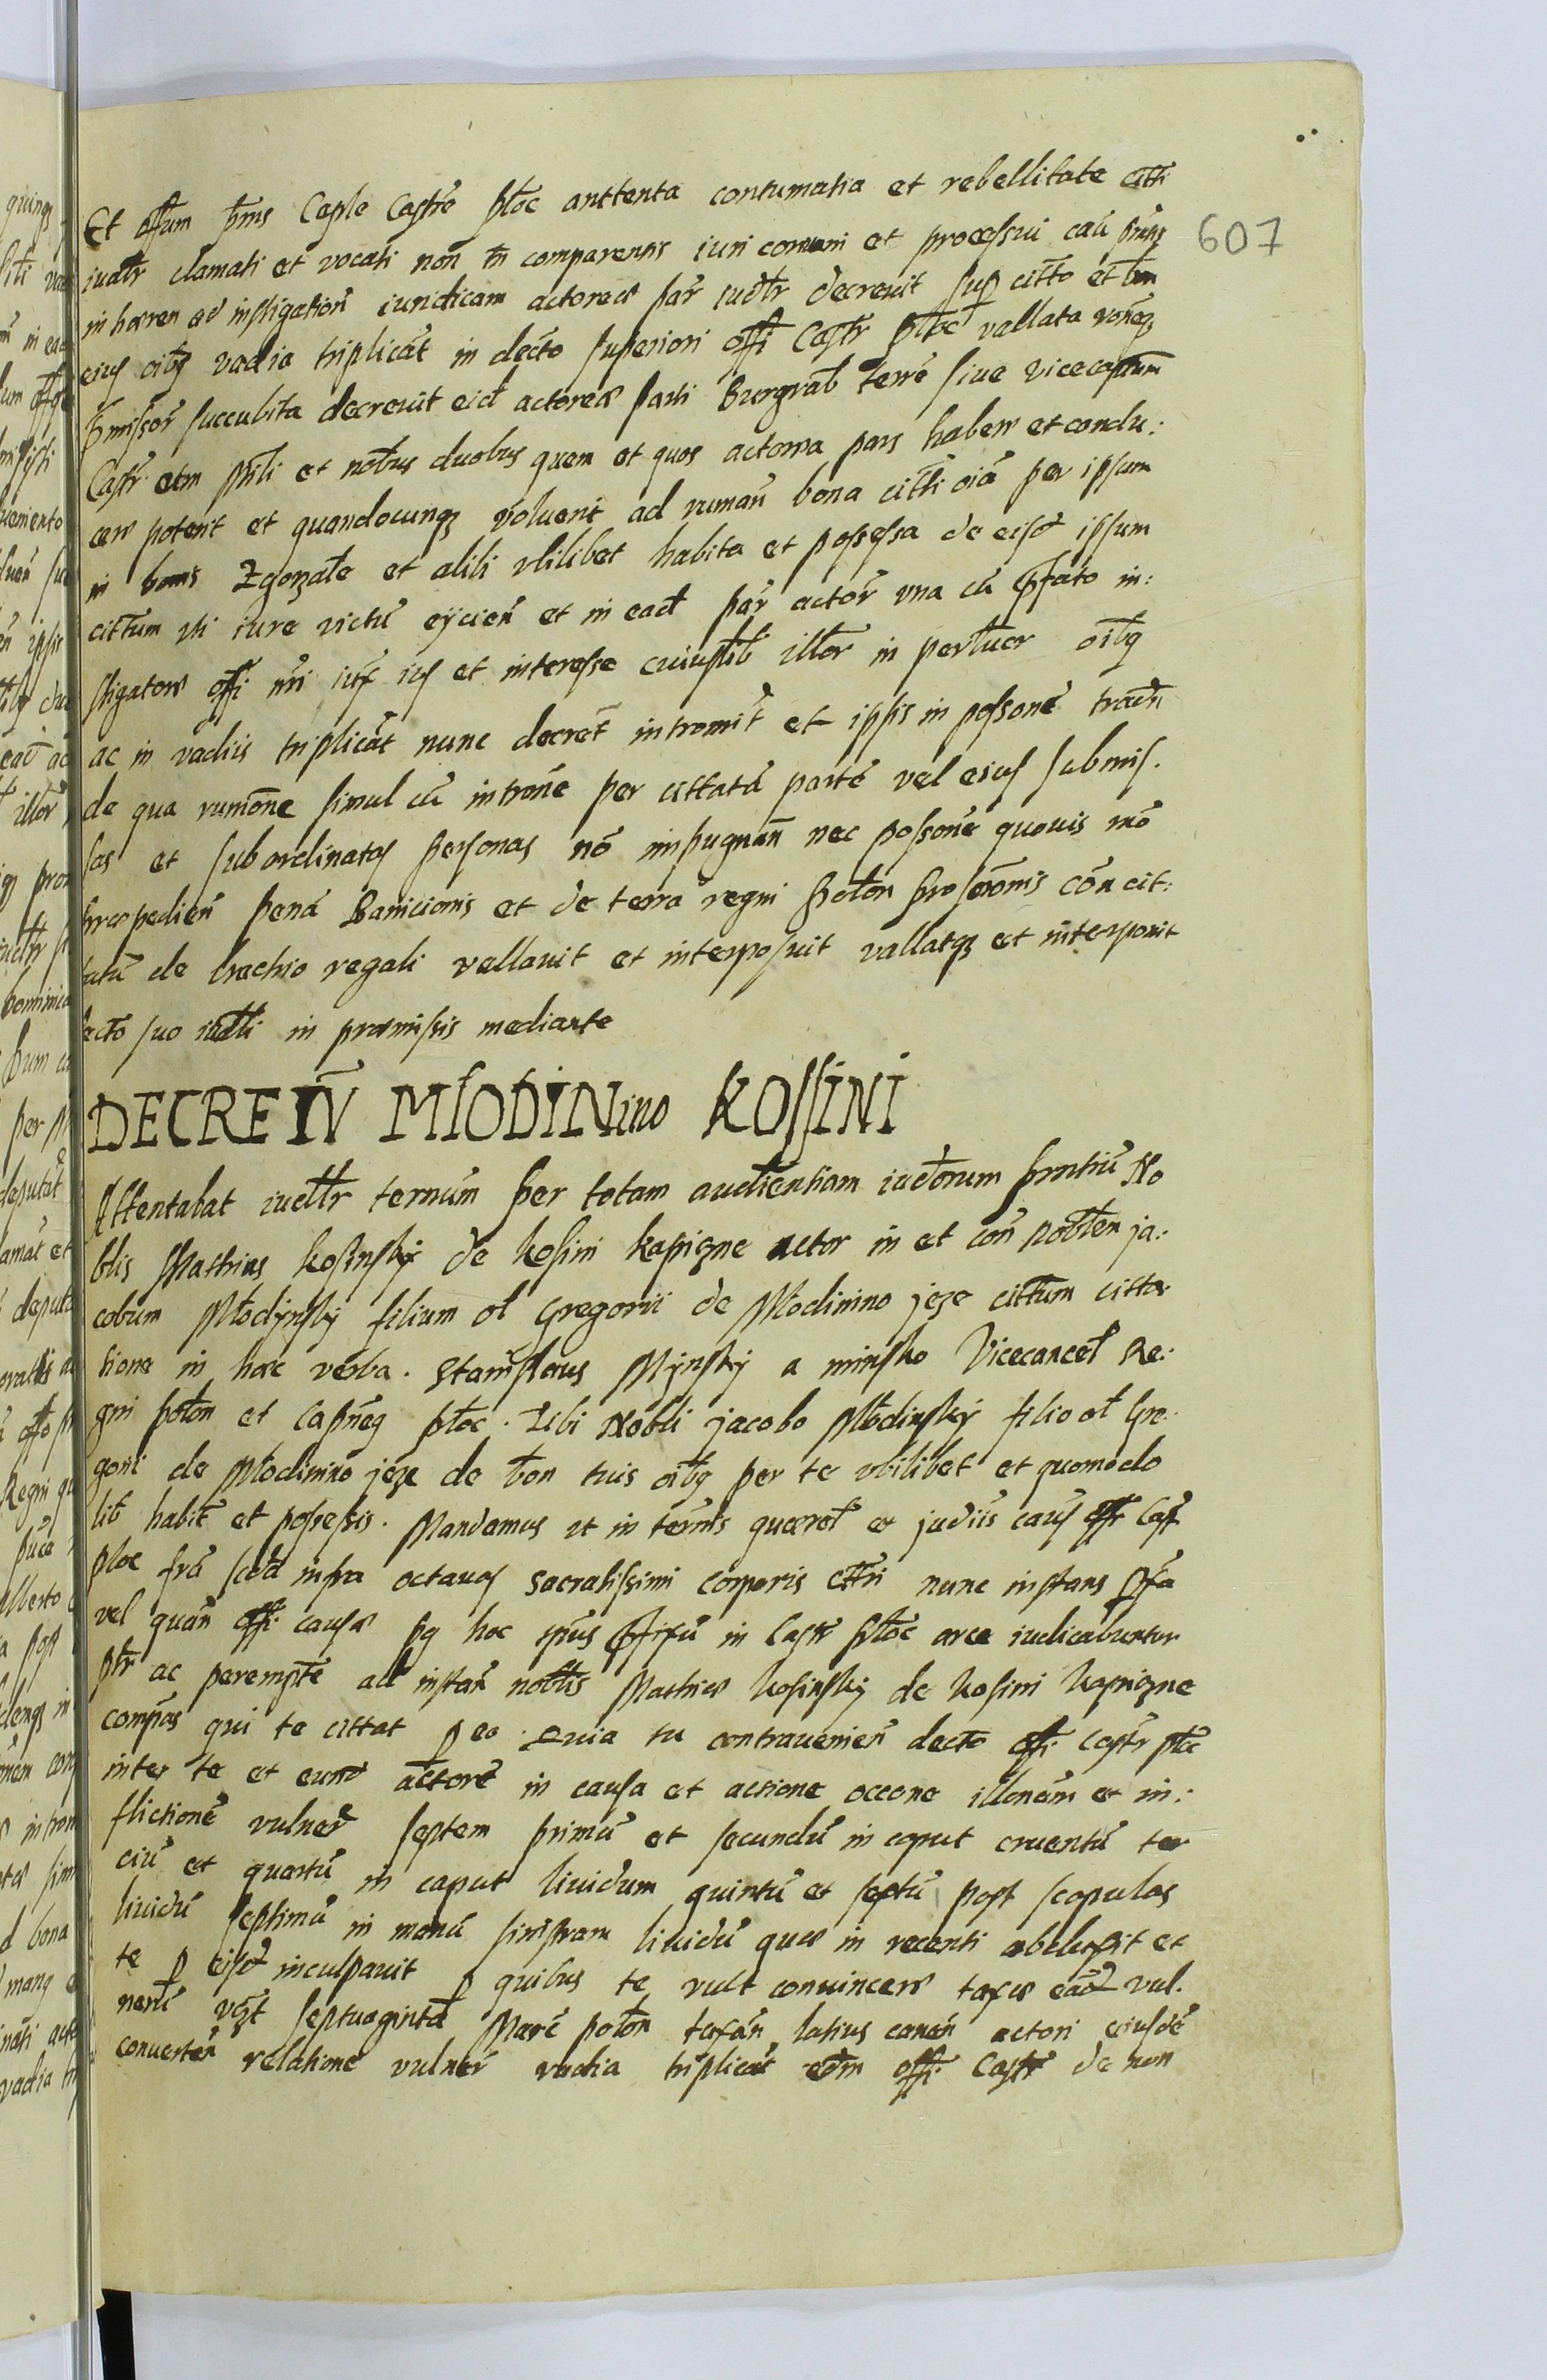 607
Et offum pns Caple Castre ploc anttenta contumatia et rebellitate citti
iudltr clamati et vocati non tn comparentis iuri comuni et processui cau prntis
in hoeren ad instigation iuridicam actorea par iudltr decrevit sup citto et bon
eius oibq vadia triplicat in decto superiori offi Castr ploc vallata roneq
pmissor succubita decrevit eid actorea parti Burgrab terre sive vicecaptum
Castr etm Mnli et nobus duobus quem et quos actorea pars habere et condu:
cere poterit et quandocunqz voluerit ad ruman bona citti oia per ipsum
in bonis Zgorzale et alibi ubilibet habita et possessa de eisd ipsum
cittum uti iure victu eycien et in ead par actor una cu pfato in:
stigatore offi nri iux ius et interesse cuiuslib illor in pertuer oibq
ac in vadiis triplicat nunc decret intromit et ipsis in possone tradn
de qua rumone simul cu introne per cittata parte vel eius submis.
sas et subordinatas personas no impugnan nec possone quovis mo
praepedien pena Banicionis et de terra regni Polon proscronis con cit:
tatu de brachio regali vallavit et interposuit vallatqz et interponit
ecto suo iudtli in praemissis mediante
DECRETŪ MŁODINino KOSSINI
Attentabat iudltr terminum per totam audientiam iudorum prntiu No
blis Mathias kosinsky de kosini kapizne actor in et con Noblem ja:
cobum Młodynsky filium ol Gregorii de Młodinino jeze cittum citta
tione in haec verba. Stanislaus Mynsky a minsko Vicecancel Re:
gni polon et Capneq ploc. Tibi Nobli jacobo Młodinsky filio ol Gre:
gorii de Młodinino jeze de bon tuis oibq per te ubilibet et quomodo
lib habit et possessis. Mandamus ut in termis querel et judiis caus offi Cast
ploc fra scda infra octavas sacratissimi corporis ctri nunc instans pfa
vel quan offi. causae pq hoc ipius pfixu in Castr ploc arce iudicabuntur
ptr ac perempte ad instan nobtis Mathiae kosinsky de kosini kapizne
compas qui te cittat p eo. Quia tu contravenien decto offi Castr ploc
inter te et eund actore in causa et actione occone illonem et in:
flictione vulner septem primu et secundu in caput cruentu ter
ciu et quartu in caput lividum quintu et sextu post scapulas
lividu septimu in manu sinistram lividu quae in recenti abduxit et
te p eisd inculpavit p quibus te vult convincere taxae ead vul.
neru vozt septuaginta Marc polon taxan latius canen actori eiusde
converten relatione vulner vadia triplicat edm offi Castr de non